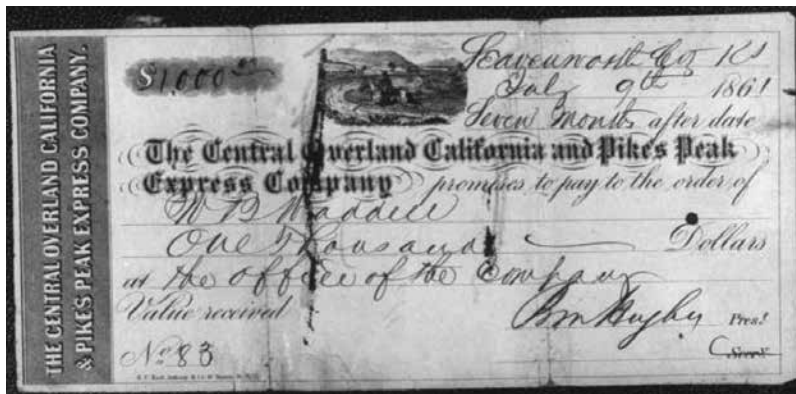 THE CENTRAL OVERLAND CALIFORNIA
& PIKES PEAK EXPRESS COMPANY.
$1,000
Leavenworth City Ks
July 9th 1861
Seven Months after date
The Central Overland California and Pike's Peak
Express Company promises to pay to the order of
W B Waddell
One Thousand Dollars
at the office of the Company
Value received
Bm Hughes Prest
No 83 Secy